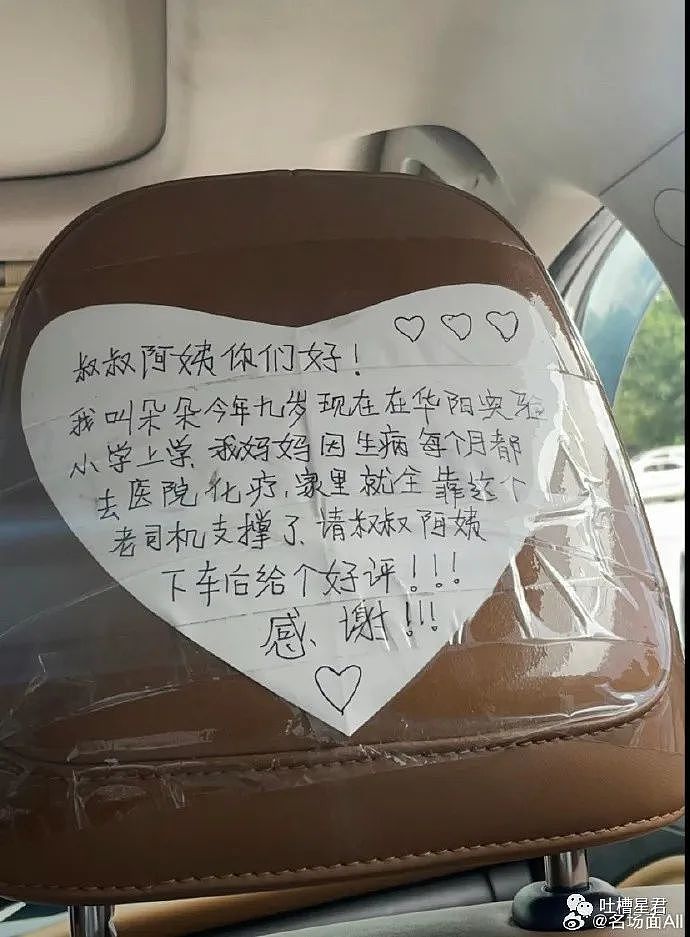 叔叔阿姨你们好!
我叫朵朵今年九岁现在在华阳实验
小学上学、我妈妈因生病每个月都
去医院化疗,家里就全靠这个
老司机支撑了、请叔叔阿姨
下车后给个好评!!!
感谢!!!
吐槽星君
@名场面All